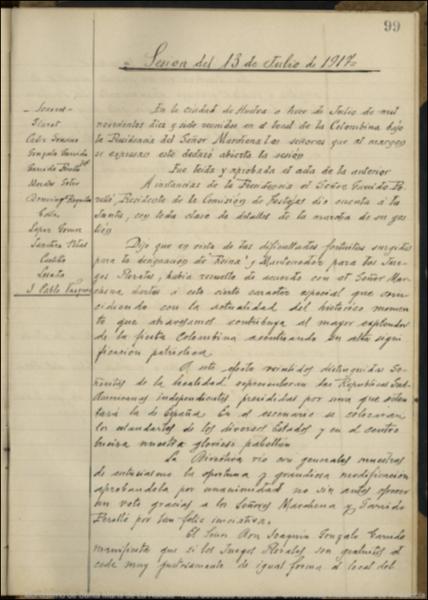 99
Sesion del 13 de Julio de 1917
Señores
En la ciudad de Huelva a trece de Julio de mil
novecientos diez y siete reunidos en el local de la Colombina bajo
la Presidencia del Señor Marchena los señores que al margen
se expresan este declaró abierta la sesión
Garrido Perelló
Morales
Lopez Gomez
J. Pablo Vazquez
Fue leida y aprobada el acta de la anterior
A instancias de la Presidencia el Señor Garrido Pe-
relló, Presidente de la Comisión de Festejos dió cuenta á la
Junta, con toda clase de detalles de la marcha de su ges-
tión
Dijo que en vista de las dificultades fortuitas surgidas
para la designación de Reina y Mantenedor para los Jue-
gos Florales, habia resuelto de acuerdo con el Señor Mar-
chena darles á este cierto caracter especial que coin-
cidiendo con la actualidad del historico momen-
to que atravesamos contribuya al mayor esplendor
de la fiesta Colombina acentuando su alta signi-
ficación patriotica
A este efecto distinguidas Se-
ñoritas de la localidad representaran las Republicas Sud-
Americanas independientes presididas por una que osten-
tará la de España. En el escenario se colocaran
los estandartes de los diversos Estados y en el centro
nuestro glorioso pabellón
La Directiva vió con generales muestras
de entusiasmo la oportuna y grandiosa modificación
aprobandola por unanimidad no sin antes ofrecer
un voto gracias a los Señores Marchena y Garrido
Perelló por tan feliz iniciativa.
El Señor Don Joaquin Gonzalo Garrido
manifiesta que si los Juegos Florales son gratuitos el
cede muy gustosamente de igual forma el local del